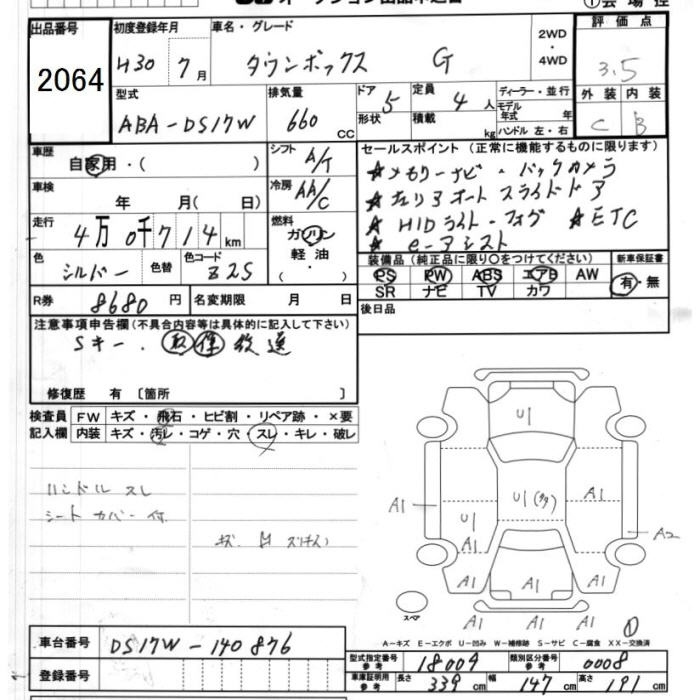 オークション出品申込書
①会場控
出品番号 初度登録年月 車名・グレード 評価点
2064
H30 7月 タウンボックス G 2WD・4WD 3.5
型式 排気量 ドア 定員 ディーラー・並行 外装 内装
ABA-DS17W 660 CC 5 4人 モデル年式 年 C B
形状 積載 kg ハンドル 左・右
車歴 自家用・( ) シフト A/T セールスポイント(正常に機能するものに限ります)
★メモリーナビ・バックカメラ
車検 年 月( 日) 冷房 AA/C ★左リアオートスライドドア
走行 4万0千714km 燃料 ガソリン 軽油 ・ ★HIDライト・フォグ ★ETC
★e-アシスト
色 シルバー 色替 色コード Z2S 装備品(純正品に限り○をつけてください) 新車保証書
PS PW ABS エアB AW 有・無
SR ナビ TV カワ
R券 8680円 名変期限 月 日 後日品
注意事項申告欄(不具合内容等は具体的に記入して下さい)
Sキー. 取 保 後送
修復歴 有[箇所 ]
検査員 FW キズ・飛石・ヒビ割・リペア跡・×要
記入欄 内装 キズ・汚レ・コゲ・穴・スレ・キレ・破レ
ハンドル スレ
シートカバー付
U1
U1(多)
A1
A1
U1
A1
A1
A2
A1
A1
A1
スペア
①
A-キズ E-エクボ U-凹み W-補修跡 S-サビ C-腐食 XX-交換済
車台番号 DS17W-140876
型式指定番号 参考 18009 類別区分番号 参考 0008
登録番号
車庫証明用 参考 長さ 339cm 幅 147cm 高さ 191cm